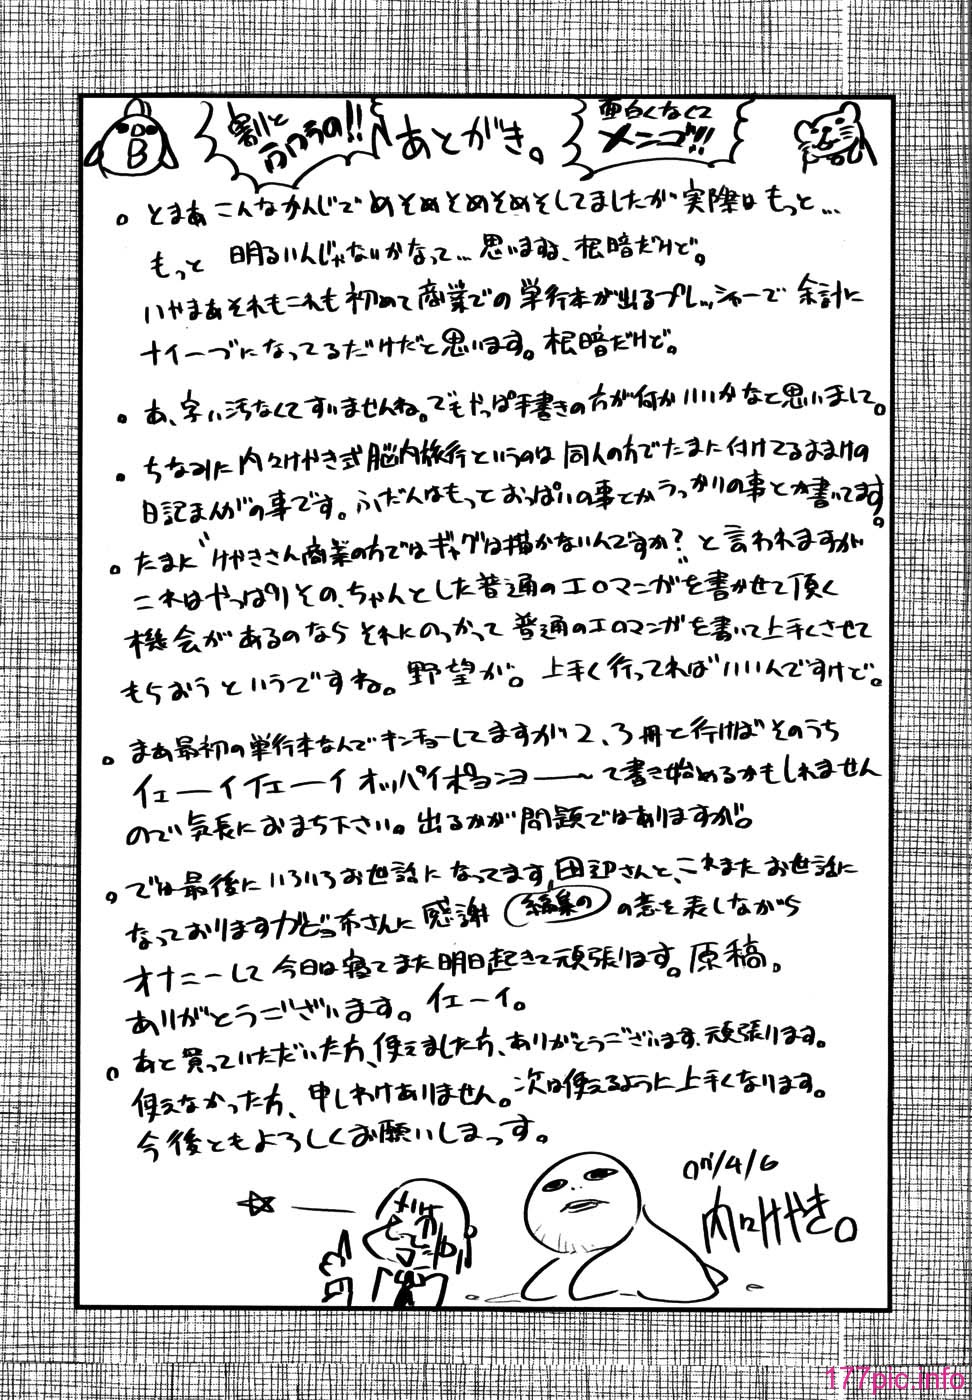 割と
フツーの!!
あとがき。
面白くなくて
メンゴ!!!
B
。とまあこんなかんじでめそめそめそめそしてましたが実際はもっと…
もっと 明るいんじゃないかなって…思いますね、根暗だけど。
いやまあそれもこれも初めて商業での単行本が出るプレッシャーで 余計に
ナイーブになってるだけだと思います。根暗だけど。
。あ、字い汚なくてすいませんね。でもやっぱ手書きの方が何かいいかなと思いまして。
。ちなみに内々けやき式脳内旅行というのは同人の方でたまに付けてるおまけの
日記まんがの事です。ふだんはもっとおっぱいの事とかうっかりの事とか書いてます。
。たまに"けやきさん商業の方ではギャグは描かないんですか?"と言われますが
これはやっぱりその、ちゃんとした普通のエロマンガを書かせて頂く
機会があるのならそれにのっかって普通のエロマンガを書いて上手くさせて
もらおうというですね。野望が。上手く行ってればいいんですけど。
。まあ最初の単行本なんでキンチョーしてますが2、3冊と行けばそのうち
イェーイイェーイオッパイポヨンヨーーて書き始めるかもしれません
ので気長におまち下さい。出るかが問題ではありますが。
。では最後にいろいろお世話になってます田辺さんと、これまたお世話に
なっておりますさんに感謝 編集の の意を表しながら
オナニーして今日は寝てまた明日起きて頑張ります。原稿。
ありがとうございます。イェーイ。
。あと買っていただいた方、使えました方、ありがとうございます、頑張ります。
使えなかった方、申しわけありません。次は使えるように上手くなります。
今後ともよろしくお願いしまっす。
07/4/6
内々けやき。
177pic.info